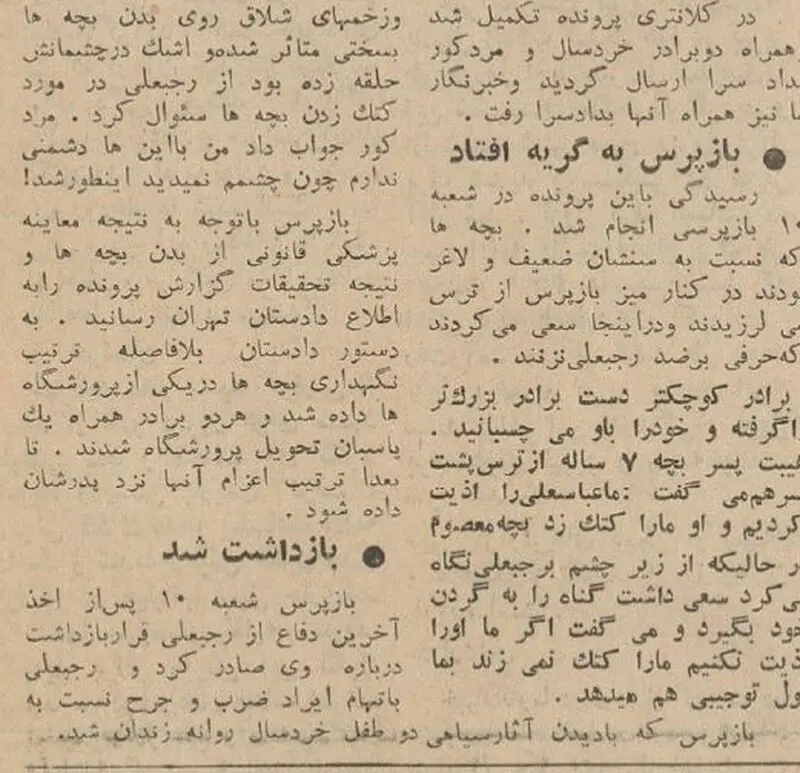 در کلانتری پرونده تکمیل شد
همراه دوبرادر خردسال و مردکور
داد سرا ارسال گردید وخبرنگار
ما نیز همراه آنها بدادسرا رفت .
● بازپرس به گریه افتاد
رسیدگی باین پرونده در شعبه
۱۰ بازپرسی انجام شد . بچه ها
که نسبت به سنشان ضعیف و لاغر
بودند در کنار میز بازپرس از ترس
می لرزیدند ودراینجا سعی می‌کردند
که‌حرفی برضد رجبعلی‌نزنند .
برادر کوچکتر دست برادر بزرگ‌تر
اگرفته و خودرا باو می چسبانید .
پسر بچه ۷ ساله ازترس‌پشت
سرهم‌می گفت :ماعباسعلی‌را اذیت
کردیم و او مارا کتك زد بچه‌معصوم
در حالیکه از زیر چشم برجبعلی‌نگاه
می‌کرد سعی داشت گناه را به گردن
خود بگیرد و می گفت اگر ما اورا
اذیت نکنیم مارا کتك نمی زند بما
پول توجیبی هم میدهد .
بازپرس که بادیدن آثارسیاهی
وزخمهای شلاق روی بدن بچه ها
بسختی متاثر شده‌و اشك درچشمانش
حلقه زده بود از رجبعلی در مورد
کتك زدن بچه ها سئوال کرد . مرد
کور جواب داد من بااین ها دشمنی
ندارم چون چشمم نمیدید اینطورشد!
بازپرس باتوجه به نتیجه معاینه
پزشکی قانونی از بدن بچه ها و
نتیجه تحقیقات گزارش پرونده رابه
اطلاع دادستان تهران رسانید . به
دستور دادستان بلافاصله ترتیب
نگهداری بچه ها دریکی ازپرورشگاه
ها داده شد و هردو برادر همراه یك
پاسبان تحویل پرورشگاه شدند . تا
بعدا ترتیب اعزام آنها نزد پدرشان
داده شود .
● بازداشت شد
بازپرس شعبه ۱۰ پس‌از اخذ
آخرین دفاع از رجبعلی قراربازداشت
درباره وی صادر کرد و رجبعلی
باتهام ایراد ضرب و جرح نسبت به
دو طفل خردسال روانه زندان شد.